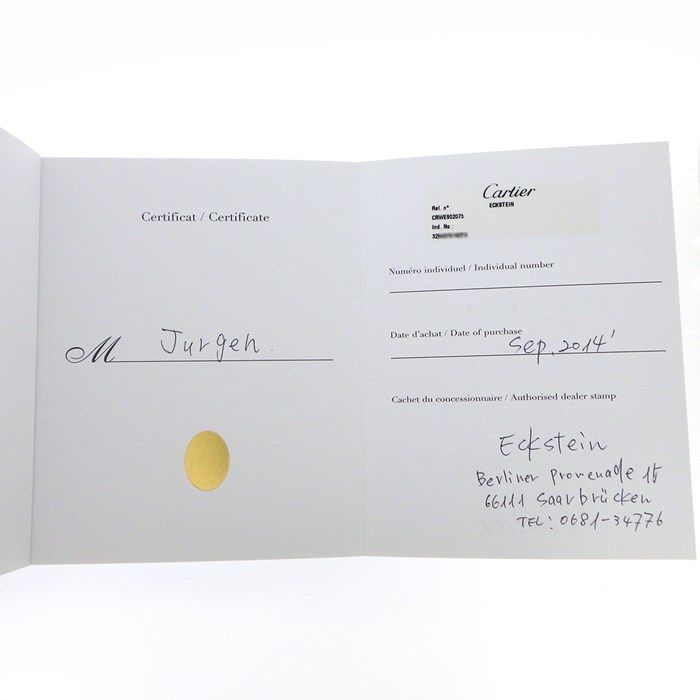 Certificat / Certificate
M Jurgen.
Cartier
ECKSTEIN
Ref. n°
CRWE902075
Ind. No :
Numéro individuel / Individual number
Date d'achat / Date of purchase
Sep, 2014'
Cachet du concessionnaire / Authorised dealer stamp
Eckstein
Berliner Promenade 15
66111 Saarbrücken
TEL: 0681-34776